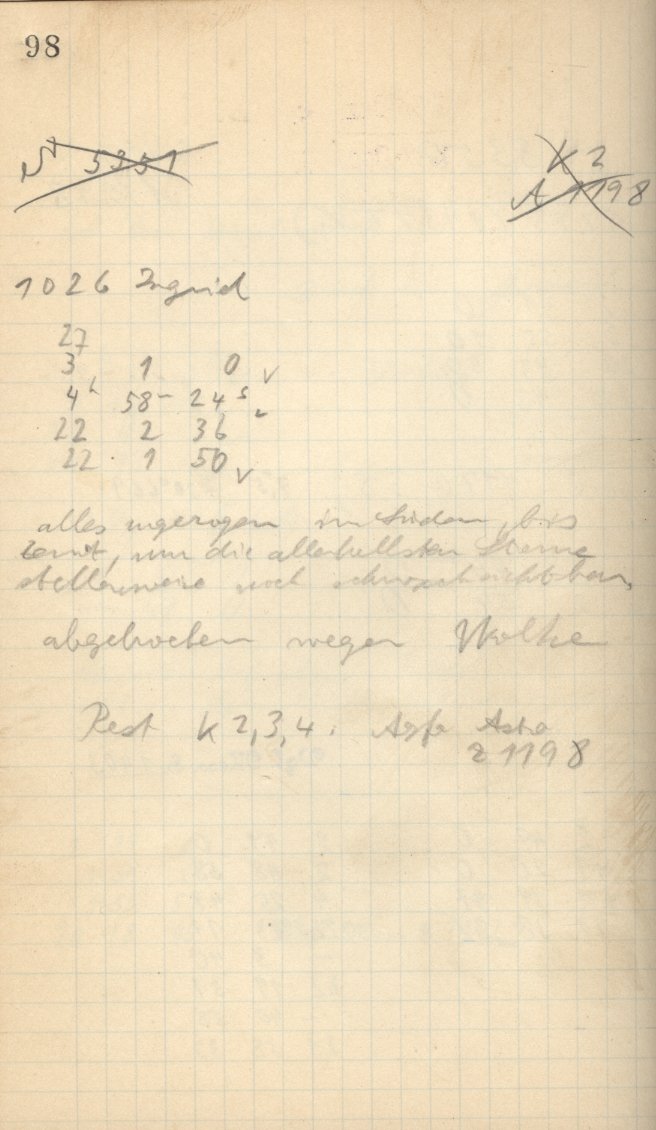 98
N 5351
K 2
A 1198
1026 Ingrid
27
3 1 0 v
4h 58m 24s
22 2 36
22 1 50 v
alles zugezogen im Süden, bis
Zenit, nur die allerhellsten Sterne
stellenweise noch schwach sichtbar,
abgebrochen wegen Wolke
Rest K 2, 3, 4. Agfa Astro
Z 1198